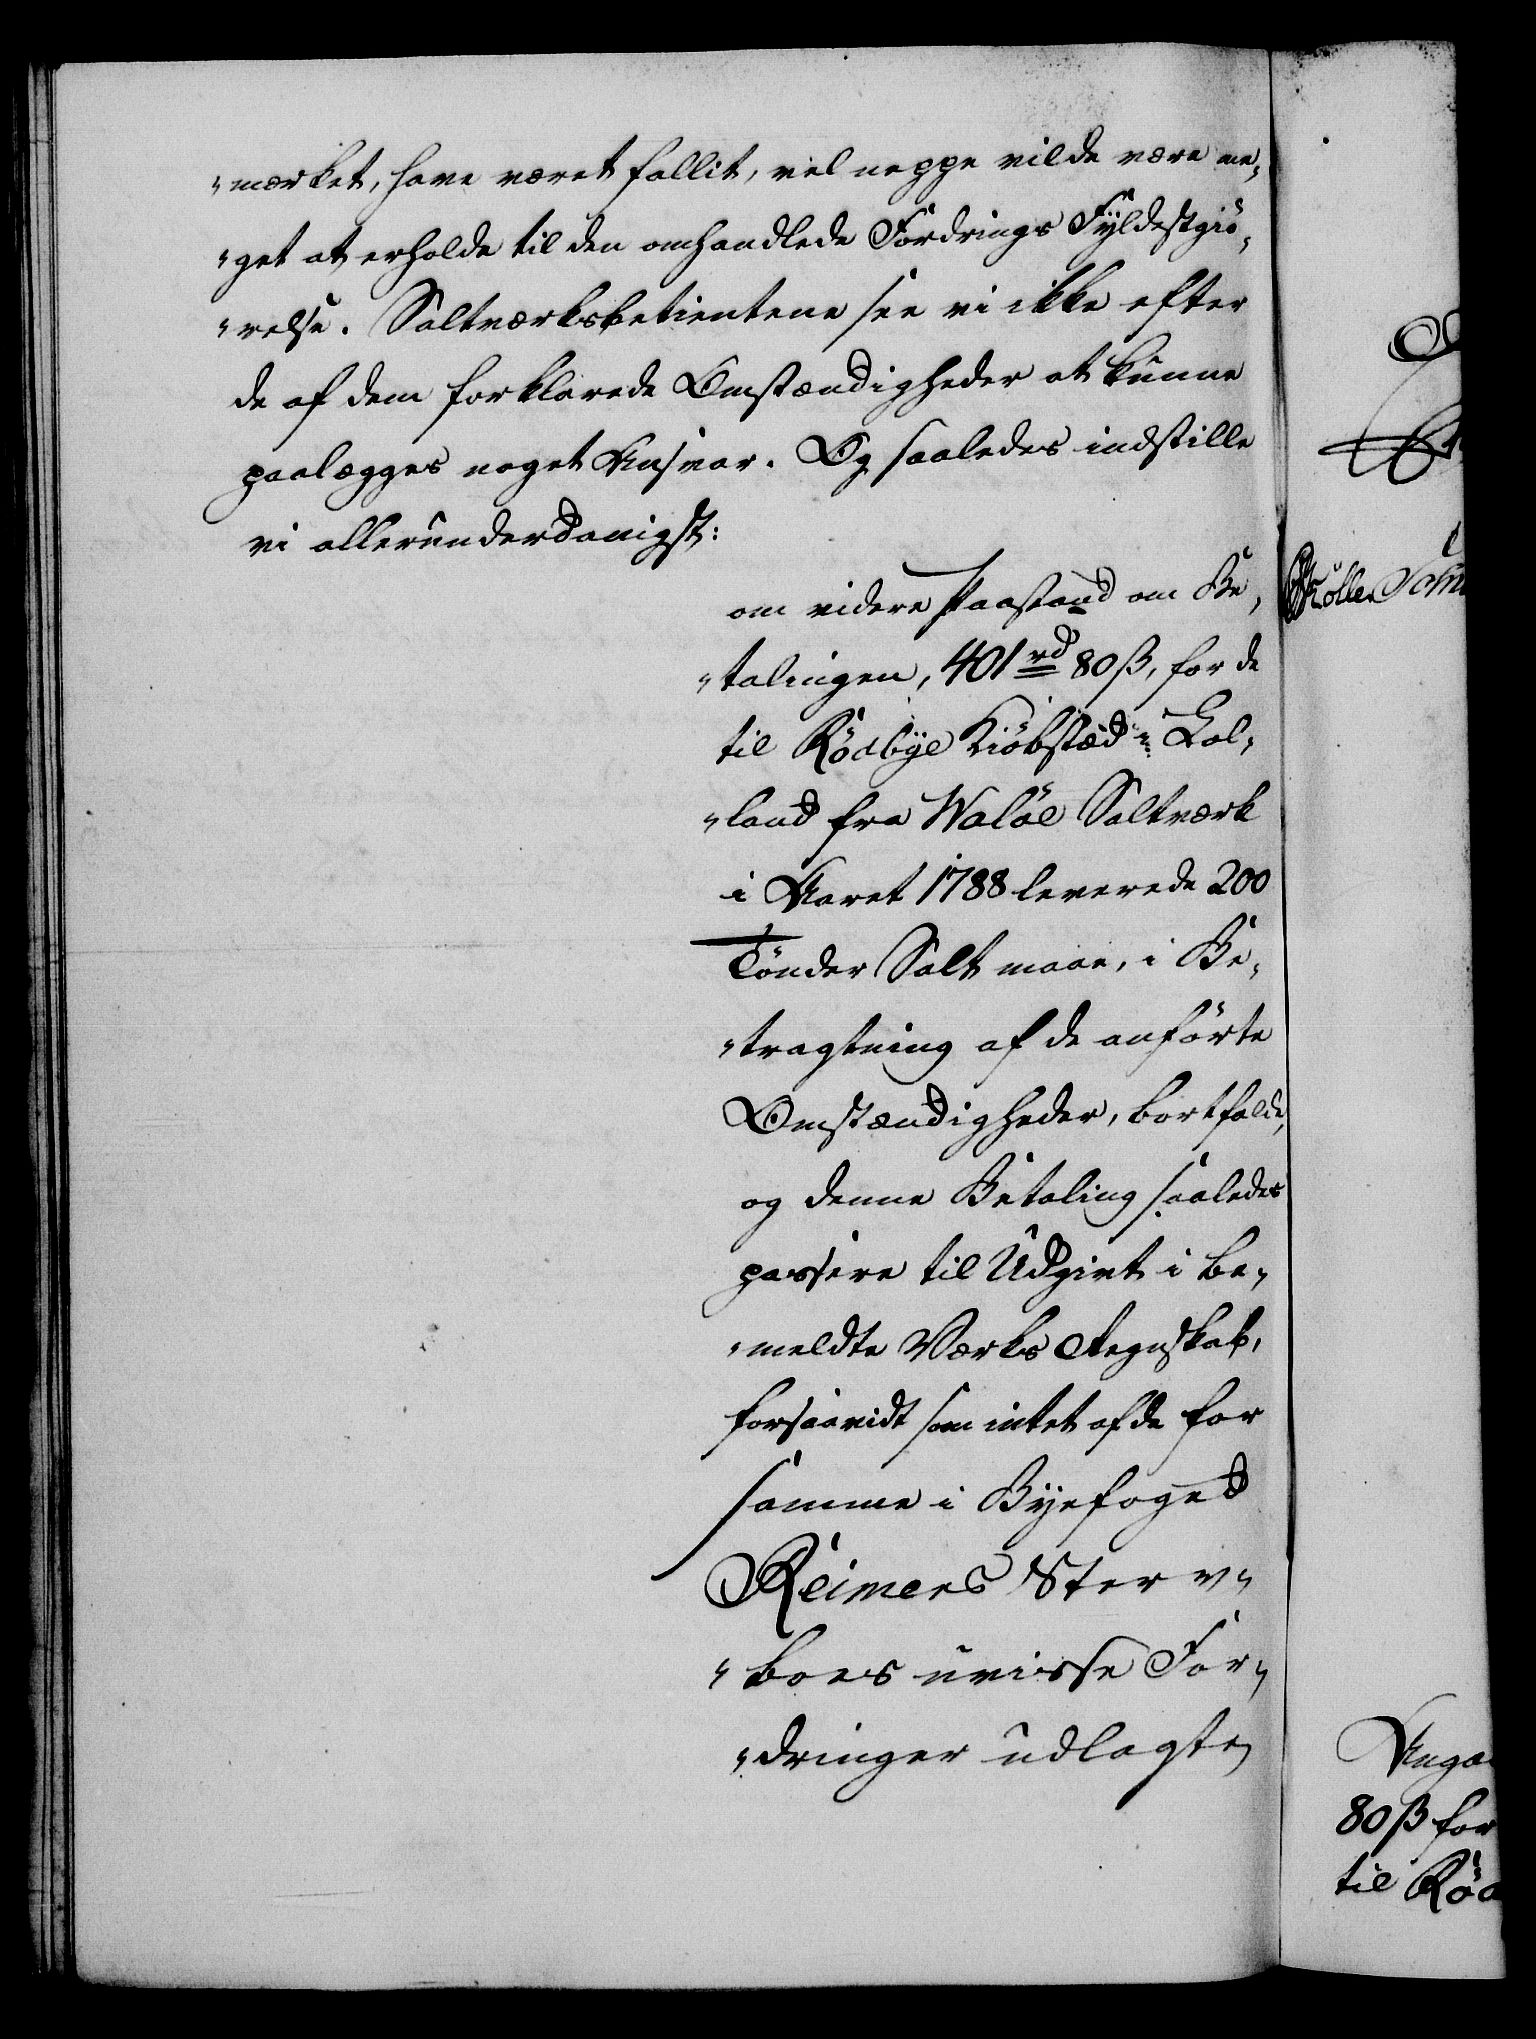 „mærket, have været fallit, vel neppe vilde være me„
„get at erholde til den omhandlede Fordrings Fyldestgiö„
„relse. Saltværksbetientene see vi ikke efter
de af dem forklarede Omstændigheder at kunne
paalægges noget Ansvar. Og saaledes indstille
vi allerunderdanigst:
om videre Paastand om Be„
„talingen, 401 rd 80 ß, for de
til Rödbye Kiöbstæd i Lol„
„land fra Walöe Saltværk
i Aaret 1788 leverede 200
Tönder Salt maae, i Be„
„tragtning af de anförte
Omstændigheder, bortfalde,
og denne Betaling saaledes
passere til Udgivt i be„
„meldte Værks Regnskab,
forsaavidt som intet af de for
samme i Byefoged
Reimers Sterv„
„boes uvisse For„
„dringer udlagte
80 ß for
til